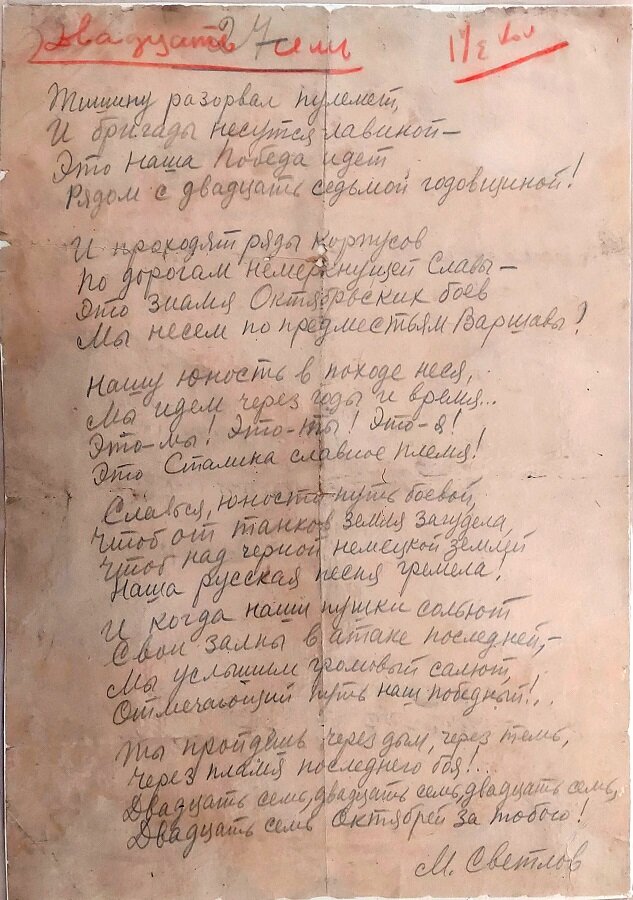 Двадцать семь 27
Тишину разорвал пулемет,
И бригады несутся лавиной –
Это наша Победа идет
Рядом с двадцать седьмой годовщиной!
И проходят ряды корпусов
По дорогам немеркнущей Славы –
Это знамя Октябрьских боев
Мы несем по предместьям Варшавы!
Нашу юность в походе неся,
Мы идем через годы и время...
Это – мы! Это – ты! Это – я!
Это Сталина славное племя!
Славься, юность – путь боевой,
Чтоб от танков земля загудела,
Чтоб над черной немецкой землей
Наша русская песня гремела!
И когда наши пушки сольют
Свои залпы в атаке последней, –
Мы услышим громовый салют,
Отмечающий путь наш победный!..
Ты пройдешь через дым, через темь,
Через пламя последнего боя!..
Двадцать семь, двадцать семь, двадцать семь,
Двадцать семь Октябрей за тобою!
М. Светлов